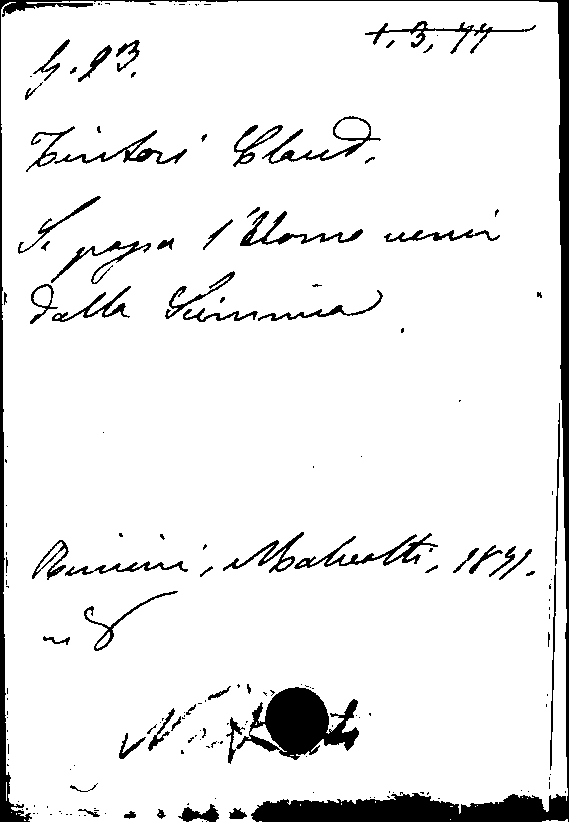 G. 23.
1, 3, 77
Tintori Claud.
Se possa l'Uomo venir
dalla Scimmia
Rimini, Malvolti, 1871.
in 8